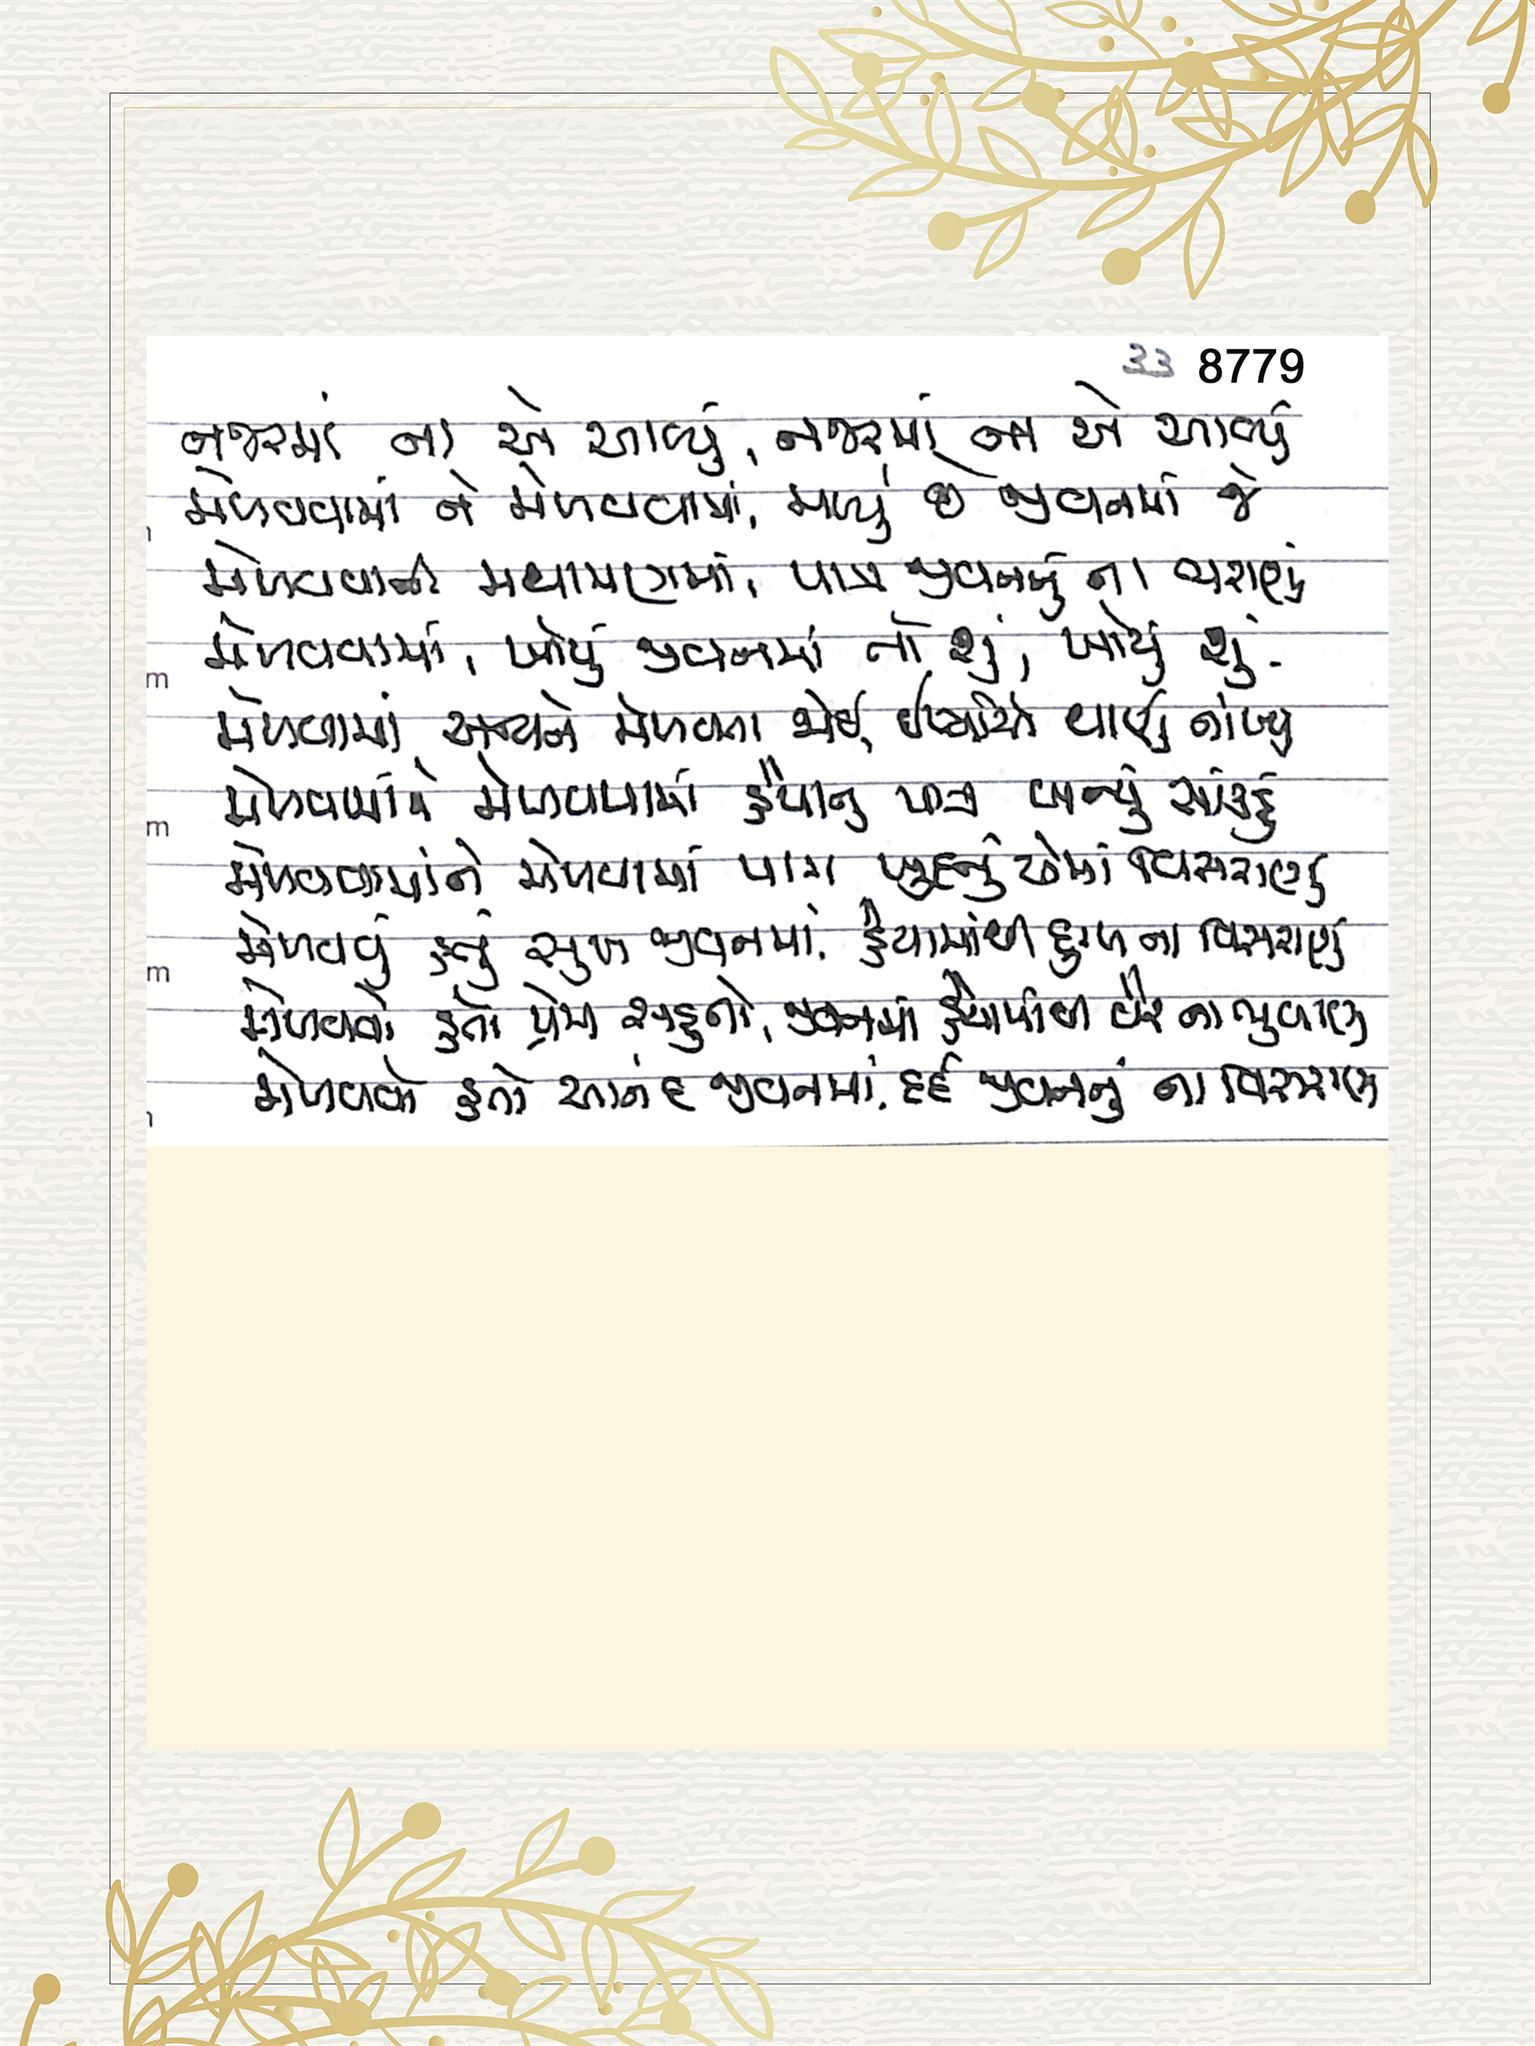 33 8779
નજરમાં ના એ આવ્યું, નજરમાં ના એ આવ્યું
મેળવવામાં ને મેળવવામાં, મળ્યું છે જીવનમાં જે
મેળવવાની મથામણમાં, પાત્ર જીવનનું ના ભરાણું
મેળવવામાં, ખોયું જીવનમાં તો શું, ખોયું શું
મેળવામાં, અન્યને મેળવતા જોઈ, નાંખ્યુ
મેળવવામાં ને મેળવવામાં હૈયાનુ પાત્ર બન્યું સાંકડું
મેળવવામાંને મેળવામાં ખુદનું એમાં વિસરાણું
મેળવવું હતું સુખ જીવનમાં, હૈયામાંથી દુઃખ ના વિસરાણું
મેળવવો હતો પ્રેમ સહુનો, જીવનમાં હૈયામાંથી વેર ના ભુલાણુ
મેળવવો હતો આનંદ જીવનમાં, દર્દ જીવનનું ના વિસરાણુ